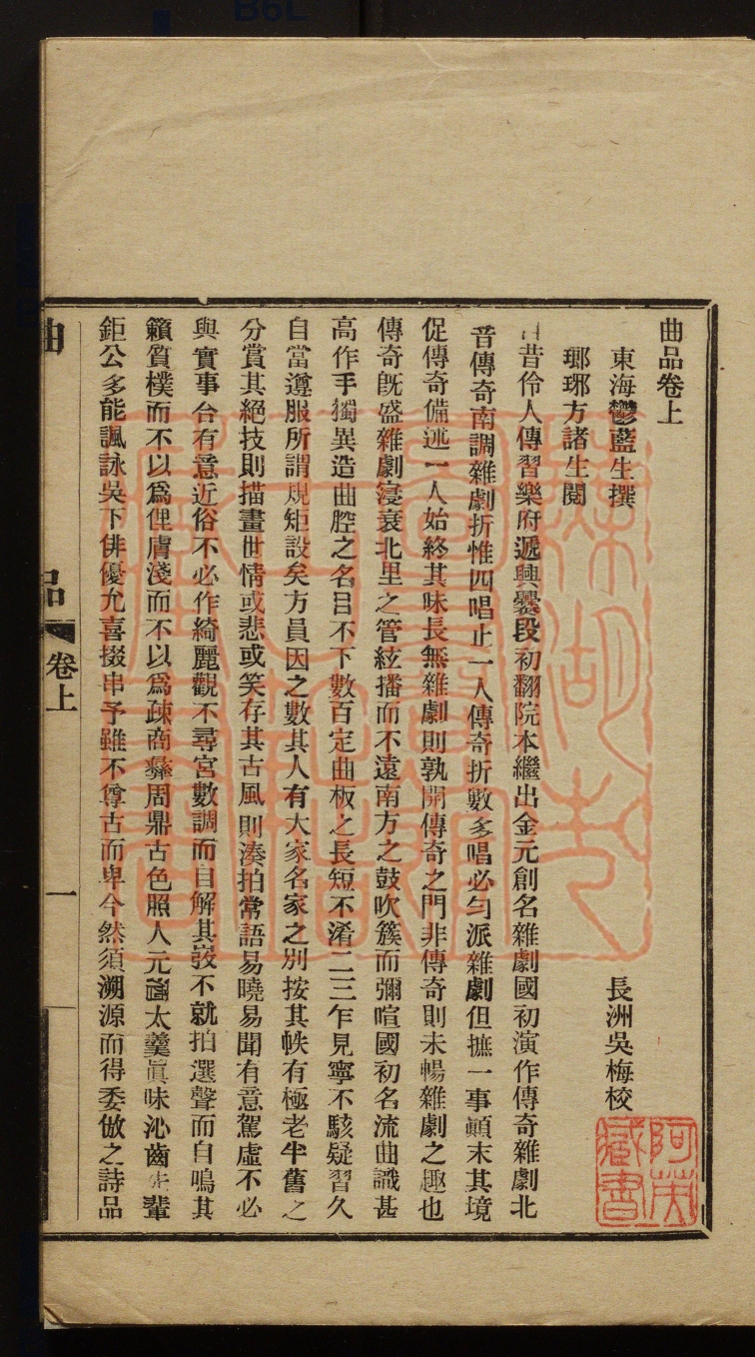 曲品卷上
東海鬱藍生撰
長洲吳梅校
瑯琊方諸生閱
昔伶人傳習樂府遞興爨段初翻院本繼出金元創名雜劇國初演作傳奇雜劇北
音傳奇南調雜劇折惟四唱止一人傳奇折數多唱必勻派雜劇但摭一事顚末其境
促傳奇備述一人始終其味長無雜劇則孰開傳奇之門非傳奇則未暢雜劇之趣也
傳奇旣盛雜劇寖衰北里之管絃播而不遠南方之鼓吹簇而彌喧國初名流曲識甚
高作手獨異造曲腔之名目不下數百定曲板之長短不淆二三乍見寧不駭疑習久
自當遵服所謂規矩設矣方員因之數其人有大家名家之別按其帙有極老半舊之
分賞其絕技則描畫世情或悲或笑存其古風則湊拍常語易曉易聞有意駕虛不必
與實事合有意近俗不必作綺麗觀不尋宮數調而自解其弢不就拍選聲而自鳴其
籟質樸而不以爲俚膚淺而不以爲疎商彝周鼎古色照人元酒太羹眞味沁齒先輩
鉅公多能諷詠吳下俳優尤喜掇串予雖不尊古而卑今然須溯源而得委倣之詩品
曲品
卷上
一
阿英藏書